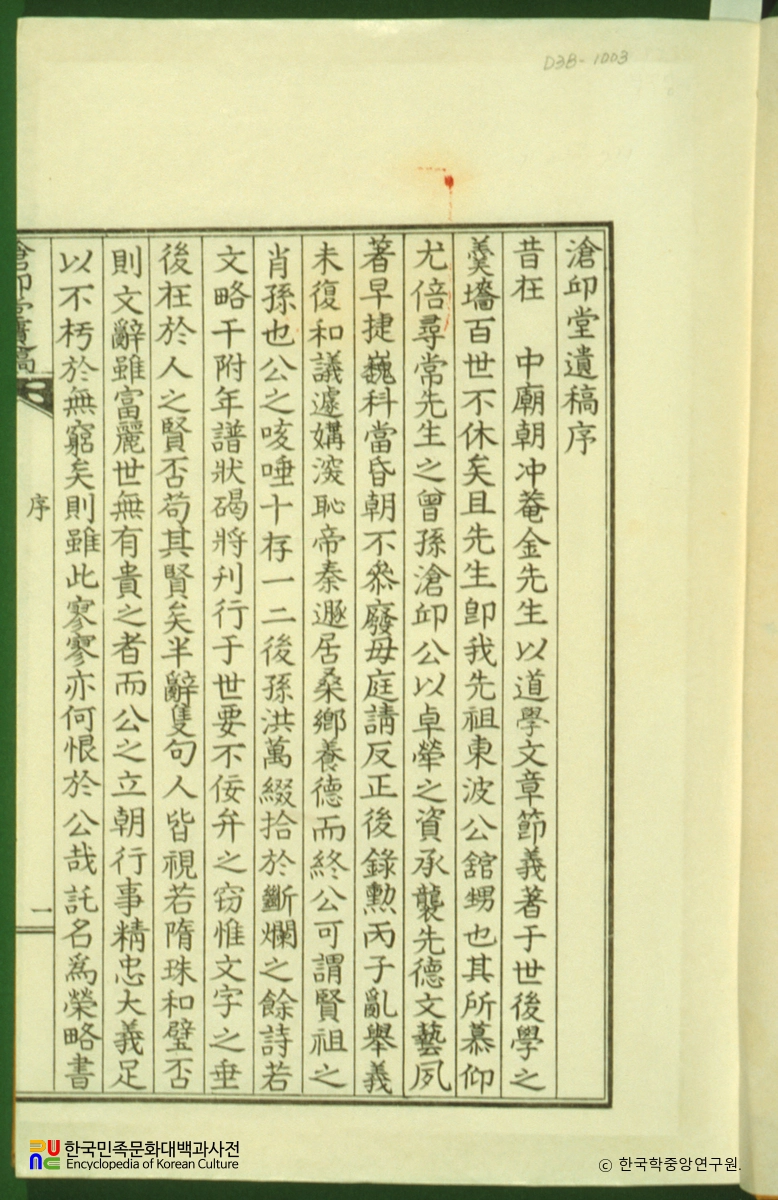 D3B-1003
滄卬堂遺稿序
昔在　中廟朝冲菴金先生以道學文章節義著于世後學之
羹墻百世不休矣且先生卽我先祖東波公舘甥也其所慕仰
尤倍尋常先生之曾孫滄卬公以卓犖之資承襲先德文藝夙
著早捷巍科當昏朝不叅廢母庭請反正後錄勳丙子亂擧義
未復和議遽媾深恥帝秦遯居桑鄕養德而終公可謂賢祖之
肖孫也公之咳唾十存一二後孫洪萬綴拾於斷爛之餘詩若
文略干附年譜狀碣將刋行于世要不佞弁之窃惟文字之垂
後在於人之賢否苟其賢矣半辭隻句人皆視若隋珠和璧否
則文辭雖富麗世無有貴之者而公之立朝行事精忠大義足
以不朽於無窮矣則雖此寥寥亦何恨於公哉託名爲榮略書
序
一
한국민족문화대백과사전
Encyclopedia of Korean Culture
ⓒ 한국학중앙연구원.